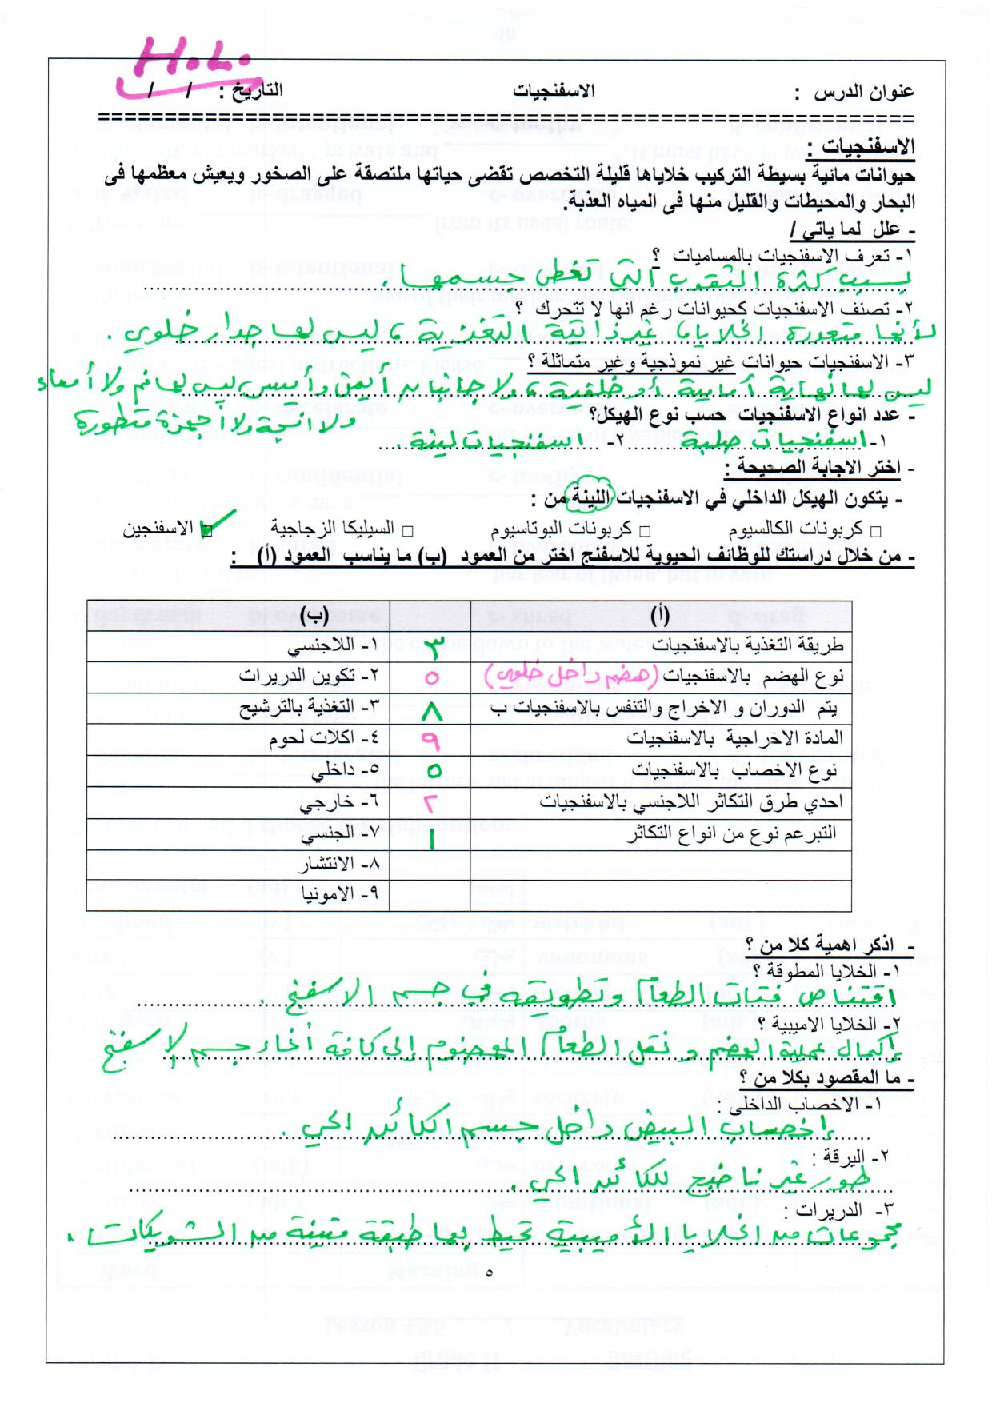 H.L.
عنوان الدرس : الاسفنجيات التاريخ : / /
==============================================================
الاسفنجيات :
حيوانات مائية بسيطة التركيب خلاياها قليلة التخصص تقضى حياتها ملتصقة على الصخور ويعيش معظمها فى
البحار والمحيطات والقليل منها فى المياه العذبة.
- علل لما ياتي /
١- تعرف الإسفنجيات بالمساميات ؟
بسبب كثرة الثقوب التي تغطي جسمها .
٢- تصنف الاسفنجيات كحيوانات رغم انها لا تتحرك ؟
لأنها متعددة الخلايا، غير ذاتية التغذية، ليس لها جدار خلوي .
٣- الاسفنجيات حيوانات غير نموذجية وغير متماثلة ؟
ليس لها نهاية أمامية أو خلفية، ولا جانبان أيمن وأيسر، ليس لها فم ولا أمعاء
ولا أنسجة ولا أجهزة متطورة
- عدد انواع الاسفنجيات حسب نوع الهيكل؟
١- اسفنجيات صلبة ٢- اسفنجيات لينة .
- اختر الاجابة الصحيحة :
- يتكون الهيكل الداخلي في الاسفنجيات اللينة من :
□ كربونات الكالسيوم □ كربونات البوتاسيوم □ السيليكا الزجاجية □ الاسفنجين
- من خلال دراستك للوظائف الحيوية للاسفنج اختر من العمود (ب) ما يناسب العمود (أ) :
(أ) (ب)
طريقة التغذية بالاسفنجيات ٣ ١- اللاجنسي
نوع الهضم بالاسفنجيات (هضم داخل خلوي) ٥ ٢- تكوين الدريرات
يتم الدوران و الاخراج والتنفس بالاسفنجيات ب ٨ ٣- التغذية بالترشيح
المادة الاخراجية بالاسفنجيات ٩ ٤- اكلات لحوم
نوع الاخصاب بالاسفنجيات ٥ ٥- داخلي
احدي طرق التكاثر اللاجنسي بالاسفنجيات ٢ ٦- خارجي
التبرعم نوع من انواع التكاثر ١ ٧- الجنسي
٨- الانتشار
٩- الامونيا
- اذكر اهمية كلا من ؟
١- الخلايا المطوقة ؟
اقتناص فتات الطعام وتطويقه في جسم الاسفنج .
٢- الخلايا الاميبية ؟
إكمال عملية الهضم و نقل الطعام المهضوم إلى كافة أنحاء جسم الإسفنج
- ما المقصود بكلا من ؟
١- الاخصاب الداخلى :
إخصاب البيض داخل جسم الكائن الحي .
٢- اليرقة :
طور غير ناضج للكائن الحي .
٣- الدريرات :
مجموعات من الخلايا الأميبية تحيط بها طبقة متينة من الشويكات .
٥